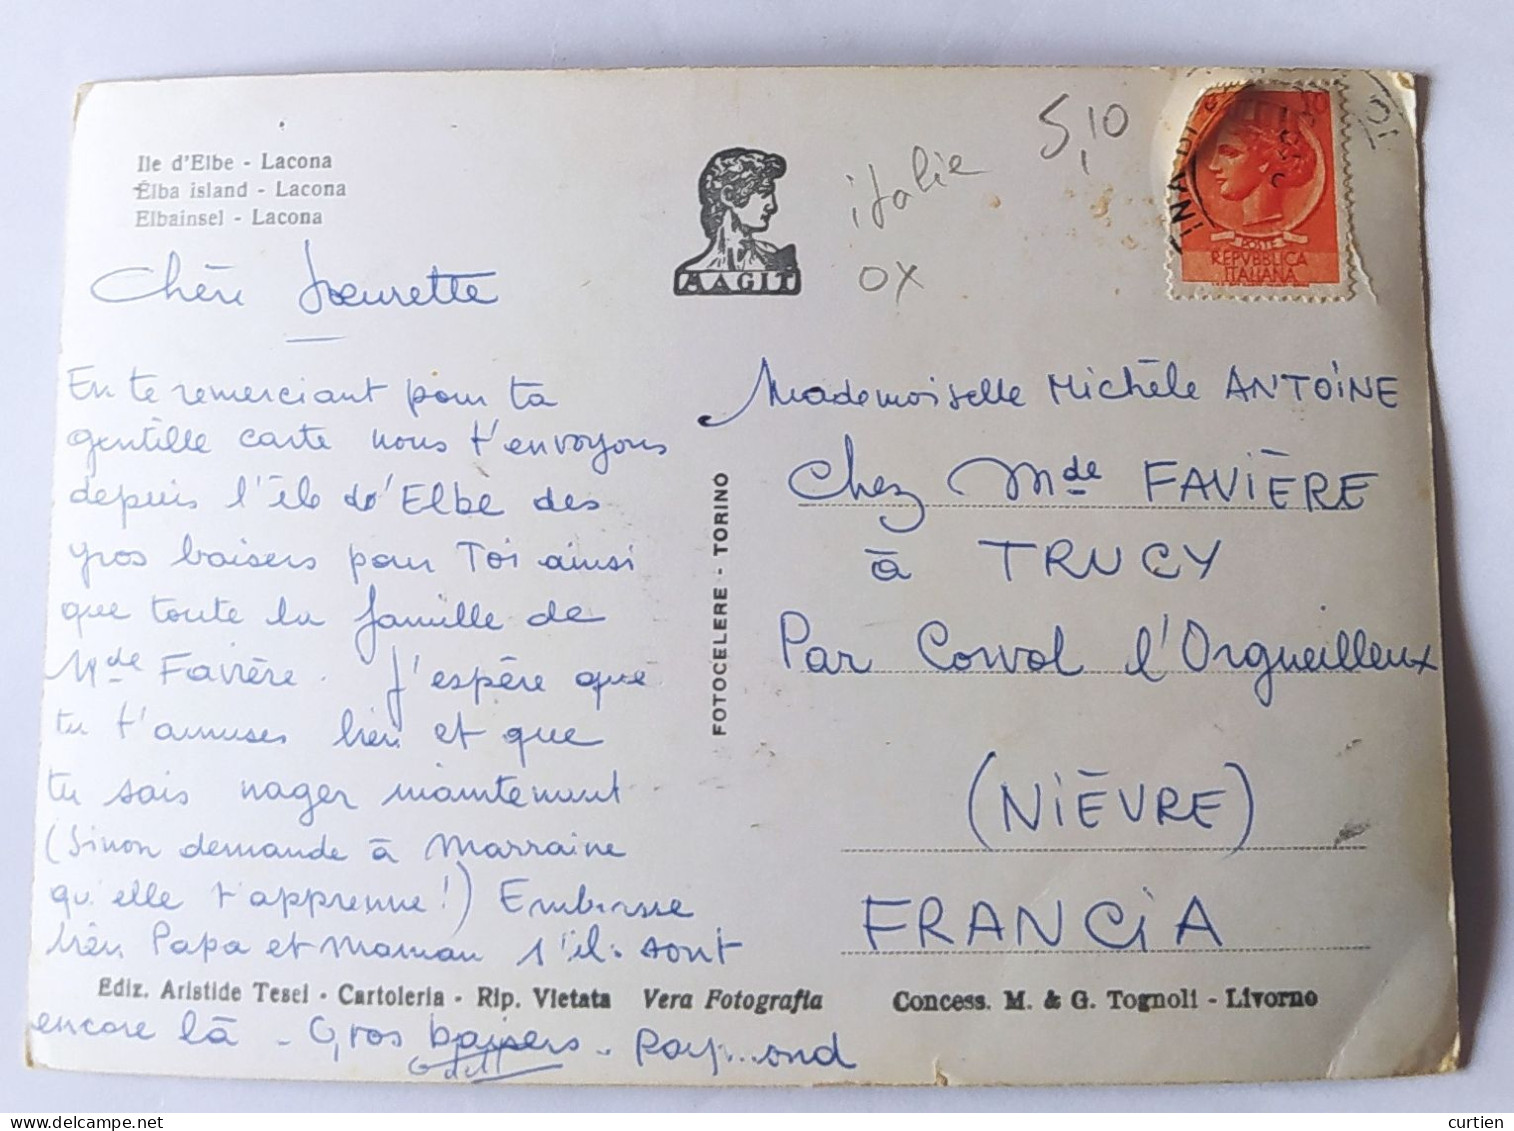 Ile d'Elbe - Lacona
Elba island - Lacona
Elbainsel - Lacona
AAGIT
italie
OX
5,10
POSTE
REPVBBLICA
ITALIANA
Chère Soeurette
En te remerciant pour ta
gentille carte nous t'envoyons
depuis l'île d'Elbe des
gros baisers pour Toi ainsi
que toute la famille de
Mde Favière. J'espère que
tu t'amuses bien et que
tu sais nager maintenant
(Sinon demande à Marraine
qu'elle t'apprenne!) Embrasse
bien Papa et Maman s'ils sont
encore là - Gros baisers - Raymond
FOTOCELERE - TORINO
Mademoiselle Michèle ANTOINE
Chez Mde FAVIÈRE
à TRUCY
Par Corvol l'Orgueilleux
(NIÈVRE)
FRANCIA
Ediz. Aristide Tesei - Cartoleria - Rip. Vietata Vera Fotografia
Concess. M. & G. Tognoli - Livorno
curtien